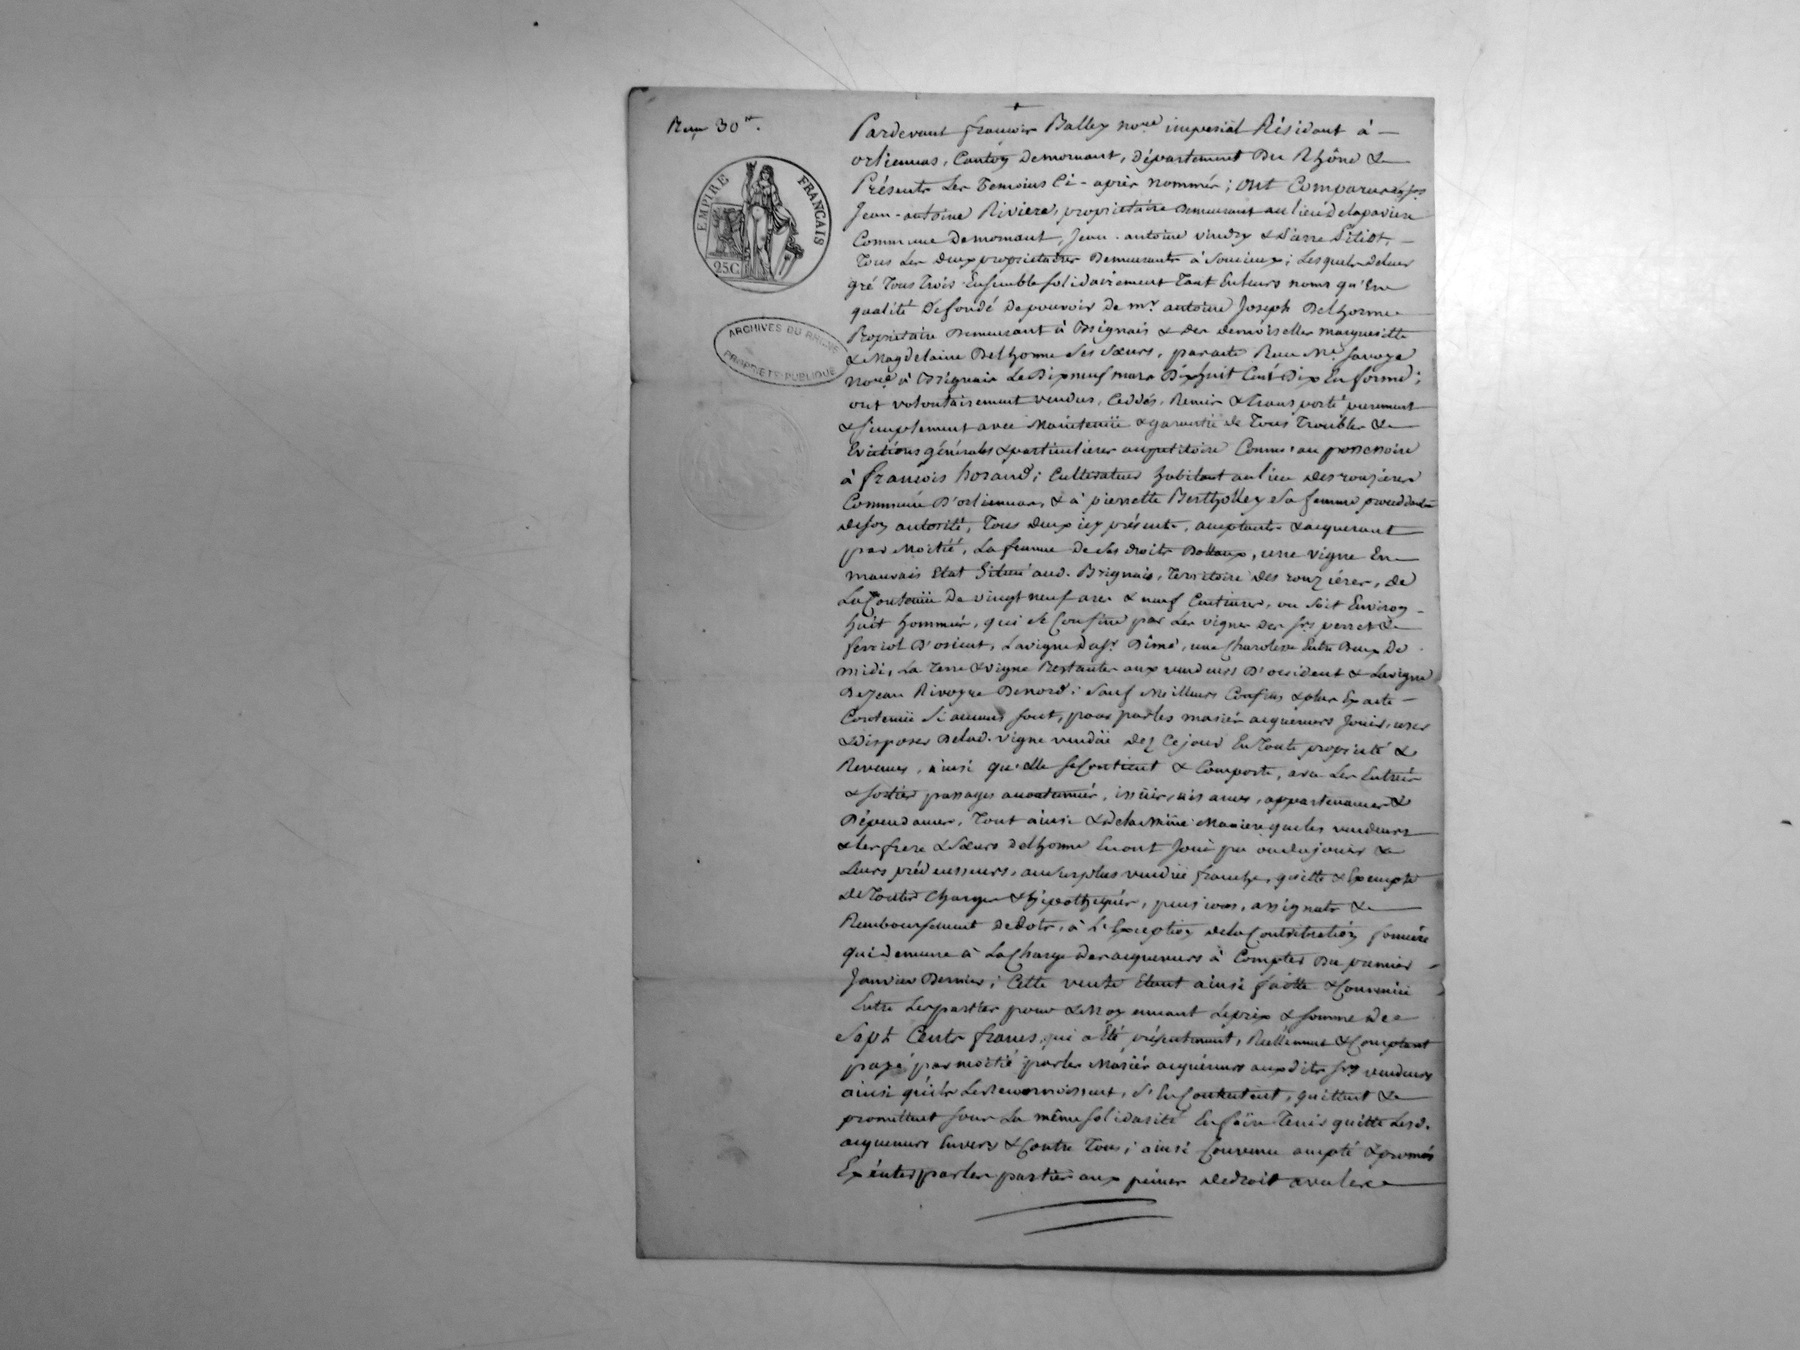 Reçu 30 ct.
EMPIRE FRANÇAIS
25C
ARCHIVES DU RHÔNE
PROPRIÉTÉ PUBLIQUE
Pardevant françois Balley no.re imperial Résidant à
orliennas, Canton demornant, département Du Rhône &
Présents Les Temoins Ci-après nommés; ont Comparus
Jean-antoine Riviere, proprietaire Demeurant au lieu delapaviere
Commune demornant, Jean-antoine vindry & Pierre Petiot,
Tous Les deux proprietaires Demeurants à Soucieux; Lesquels deleur
gré Tous Trois Ensemble solidairement Tant Enleurs noms qu'En
qualité De fondé depouvoir de mr. antoine Joseph Delhorme
Proprietaire Demeurant à Brignais & des demoiselles marguerite
& Magdelaine Delhorme ses sœurs, par acte Reçu Me. Savoye
no.re à Brignais Le Dixneuf mars Dixhuit Cent Dix En forme;
ont volontairement vendus, Ceddés, Remis & Transporté purement
& simplement avec Maintenüe & garantie de Tous Troubles &
Evictions générales & particulieres au petitoire Comme au possessoire
à françois horand; Cultivateur habitant au lieu des rouzieres
Commune D'orliennas, & à pierrette Bertholley Sa femme procedante
deson autorité, Tous deux icy présents, acceptants & acquerant
par Moitié, La femme de Ses droits Dottaux, une vigne En
mauvais Etat Située aud. Brignais, Territoire des rouzieres, de
La Contenüe De vingt neuf ares & neuf Centiares, ou Soit Environ
huit hommées, qui Se Confine par Les vignes des srs. perret &
ferriol D'orient, La vigne du sr. Dime, une Charoliere Entre Deux De
midi, La Terre & vigne Restante aux vendeurs D'occident & La vigne
De Jean Rivoyre Denord; Sauf Meilleurs Confins & plus Exacte
Contenüe Si aucuns sont, pour par les mariés acquereurs Jouir, user
& Disposer Delad. vigne vendüe dez Ce jour En Toute propriété &
Revenus, ainsi qu'elle se Contient & Comporte, avec Les Entrées
& sorties passages accoutumés, issües, aisances, appartenances &
Dépendances, Tout ainsi & Dela Même Maniere que les vendeurs
& Les frere & Sœurs delhorme En ont Joui pu ou du jouir &
Leurs prédecesseurs, au Surplus vendüe franche, quitte & Exempte
de Toutes Charges & hipothèques, pensions, assignats &
Remboursement de dots, à L'Exception dela Contribution fonciere
qui demeure à La Charge des acquereurs à Compter Du premier
Janvier Dernier; Cette vente Etant ainsi faitte & Convenüe
Entre Les parties pour & Moyennant Le prix & somme De
Sept Cents francs, qui a Eté présentement, Réellement & Comptant
payé par moitié par les Mariés acquereurs auxdits srs. vendeurs
ainsi qu'ils Le Reconnoissent, S'En Contentent, quittent &
promettent sous La même solidarité En faire Tenir quitte Lesd.
acquereurs Envers & Contre Tous; ainsi Convenu accepté & promis
Exécuter par les parties aux peines de droit a valere